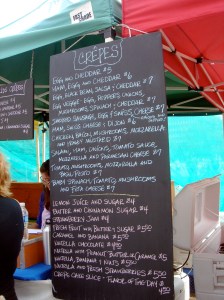 CRÊPES
EGG AND CHEDDAR $5
HAM, EGG AND CHEDDAR $6
EGG, BLACK BEAN, SALSA & CHEDDAR $7
EGG VEGGIE: EGG, PEPPERS, ONIONS,
MUSHROOMS, SPINACH & CHEDDAR $7
SMOKED SAUSAGE, EGG & SWISS CHEESE $7
HAM, SWISS CHEESE & DIJON $6
CHICKEN, BACON, MUSHROOMS, MOZZARELLA
AND HONEY MUSTARD $7
SALAMI, HAM, ONIONS, TOMATO SAUCE,
MOZZARELLA AND PARMESAN CHEESE $7
TOMATO, MUSHROOMS, MOZZARELLA AND
BASIL PESTO $7
BABY SPINACH, TOMATO, MUSHROOMS
AND FETA CHEESE $7
LEMON JUICE AND SUGAR $4
BUTTER AND CINNAMON SUGAR $4
STRAWBERRY JAM $4
FRESH FRUIT AND BUTTER/SUGAR $5.50
CARAMEL AND BANANA $5.50
NUTELLA CHOCOLATE $4.50
NUTELLA AND PEANUT BUTTER
NUTELLA, BANANA & NUTS $5.50
NUTELLA AND FRESH STRAWBERRIES $5.50
CREPE CAKE SLICE - FLAVOR OF THE DAY
$4.50